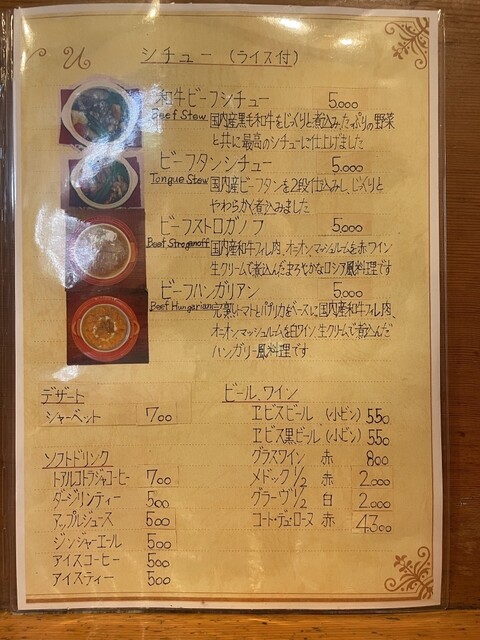 シチュー (ライス付)
和牛ビーフシチュー 5,000
Beef Stew 国内産黒毛和牛をじっくりと煮込みたっぷりの野菜
と共に最高のシチューに仕上げました
ビーフタンシチュー 5,000
Tongue Stew 国内産ビーフタンを2段仕込みし、じっくりと
やわらかく煮込みました
ビーフストロガノフ 5,000
Beef Stroganoff 国内産和牛フィレ肉、オニオン、マッシュルームを赤ワイン
生クリームで煮込んだまろやかなロシア風料理です
ビーフハンガリアン 5,000
Beef Hungarian 完熟トマトとパプリカをベースに国内産和牛フィレ肉、
オニオン、マッシュルームを白ワイン、生クリームで煮込んだ
ハンガリー風料理です
デザート
シャーベット 700
ソフトドリンク
トアルコトラジャコーヒー 700
ダージリンティー 500
アップルジュース 500
ジンジャーエール 500
アイスコーヒー 500
アイスティー 500
ビール、ワイン
ヱビスビール (小ビン) 550
ヱビス黒ビール (小ビン) 550
グラスワイン 赤 800
メドック 1/2 赤 2.000
グラーヴ 1/2 白 2.000
コート・デュ・ローヌ 赤 4300